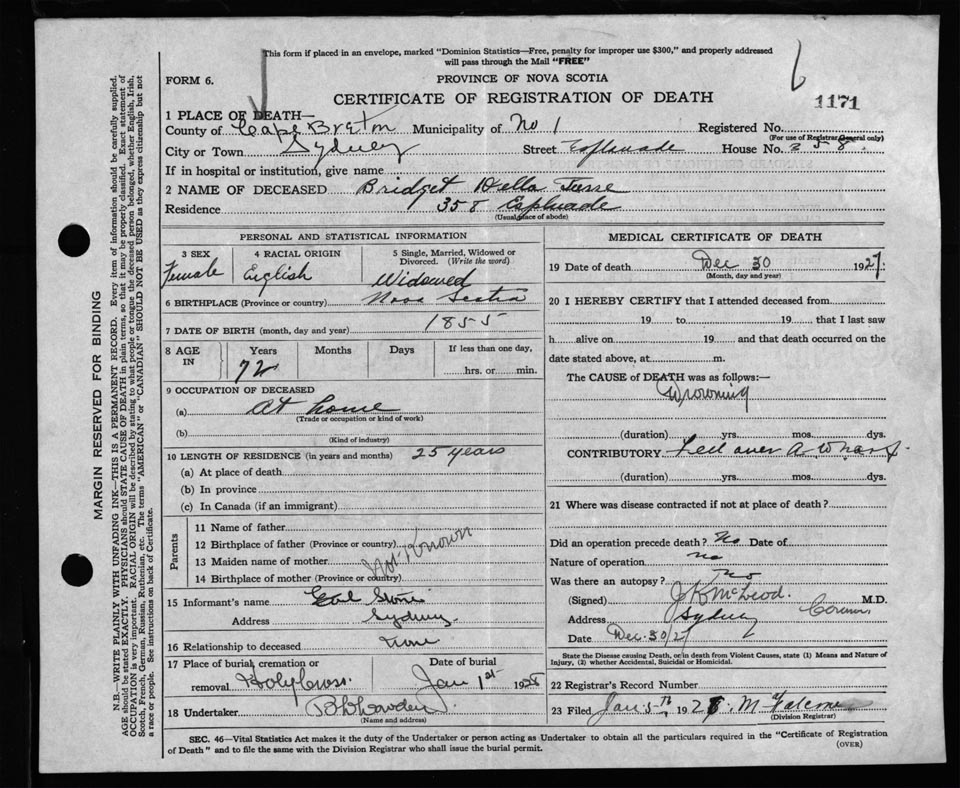 This form if placed in an envelope, marked "Dominion Statistics—Free, penalty for improper use $300," and properly addressed
will pass through the Mail "FREE"
FORM 6.
PROVINCE OF NOVA SCOTIA
CERTIFICATE OF REGISTRATION OF DEATH
1171
1 PLACE OF DEATH—
County of Cape Breton Municipality of No 1 Registered No.
(For use of Registrar General only)
City or Town Sydney Street Esplanade House No. 358
If in hospital or institution, give name
2 NAME OF DECEASED Bridget Della
Residence 358 Esplnade
(Usual place of abode)
PERSONAL AND STATISTICAL INFORMATION
3 SEX 4 RACIAL ORIGIN 5 Single, Married, Widowed or Divorced. (Write the word)
Female English Widowed
6 BIRTHPLACE (Province or country) Nova Scotia
7 DATE OF BIRTH (month, day and year) 1855
8 AGE IN Years Months Days If less than one day,
72 hrs. or min.
9 OCCUPATION OF DECEASED
(a) At home
(Trade or occupation or kind of work)
(b)
(Kind of industry)
10 LENGTH OF RESIDENCE (in years and months) 25 years
(a) At place of death
(b) In province
(c) In Canada (if an immigrant)
Parents
11 Name of father
12 Birthplace of father (Province or country)
13 Maiden name of mother Not Known
14 Birthplace of mother (Province or country)
15 Informant's name Earl
Address Sydney
16 Relationship to deceased none
17 Place of burial, cremation or removal Holy Cross. Date of burial Jan 1st 1928
18 Undertaker
(Name and address)
MEDICAL CERTIFICATE OF DEATH
19 Date of death Dec 30 1927
(Month, day and year)
20 I HEREBY CERTIFY that I attended deceased from
19 to 19 that I last saw
h alive on 19 and that death occurred on the
date stated above, at m.
The CAUSE of DEATH was as follows:—
Drowning
(duration) yrs. mos. dys.
CONTRIBUTORY Fell over a Wharf
(duration) yrs. mos. dys.
21 Where was disease contracted if not at place of death?
Did an operation precede death? No Date of
Nature of operation no
Was there an autopsy? no
(Signed) J K McLeod. M.D.
Address Sydney Coroner
Date Dec. 30/27
State the Disease causing Death, or in death from Violent Causes, state (1) Means and Nature of
Injury, (2) whether Accidental, Suicidal or Homicidal.
22 Registrar's Record Number
23 Filed Jan 5th 1928 M
(Division Registrar)
SEC. 46—Vital Statistics Act makes it the duty of the Undertaker or person acting as Undertaker to obtain all the particulars required in the "Certificate of Registration
of Death" and to file the same with the Division Registrar who shall issue the burial permit.
(OVER)
MARGIN RESERVED FOR BINDING
N.B.—WRITE PLAINLY WITH UNFADING INK—THIS IS A PERMANENT RECORD. Every item of information should be carefully supplied.
AGE should be stated EXACTLY. PHYSICIANS should STATE CAUSE OF DEATH in plain terms, so that it may be properly classified. Exact statement of
OCCUPATION is very important. RACIAL ORIGIN will be described by stating to what people or tongue the deceased person belonged, whether English, Irish,
Scotch, French, German, Russian, Ruthenian, etc. The terms "AMERICAN" or "CANADIAN" SHOULD NOT BE USED as they express citizenship but not
a race or people. See instructions on back of Certificate.